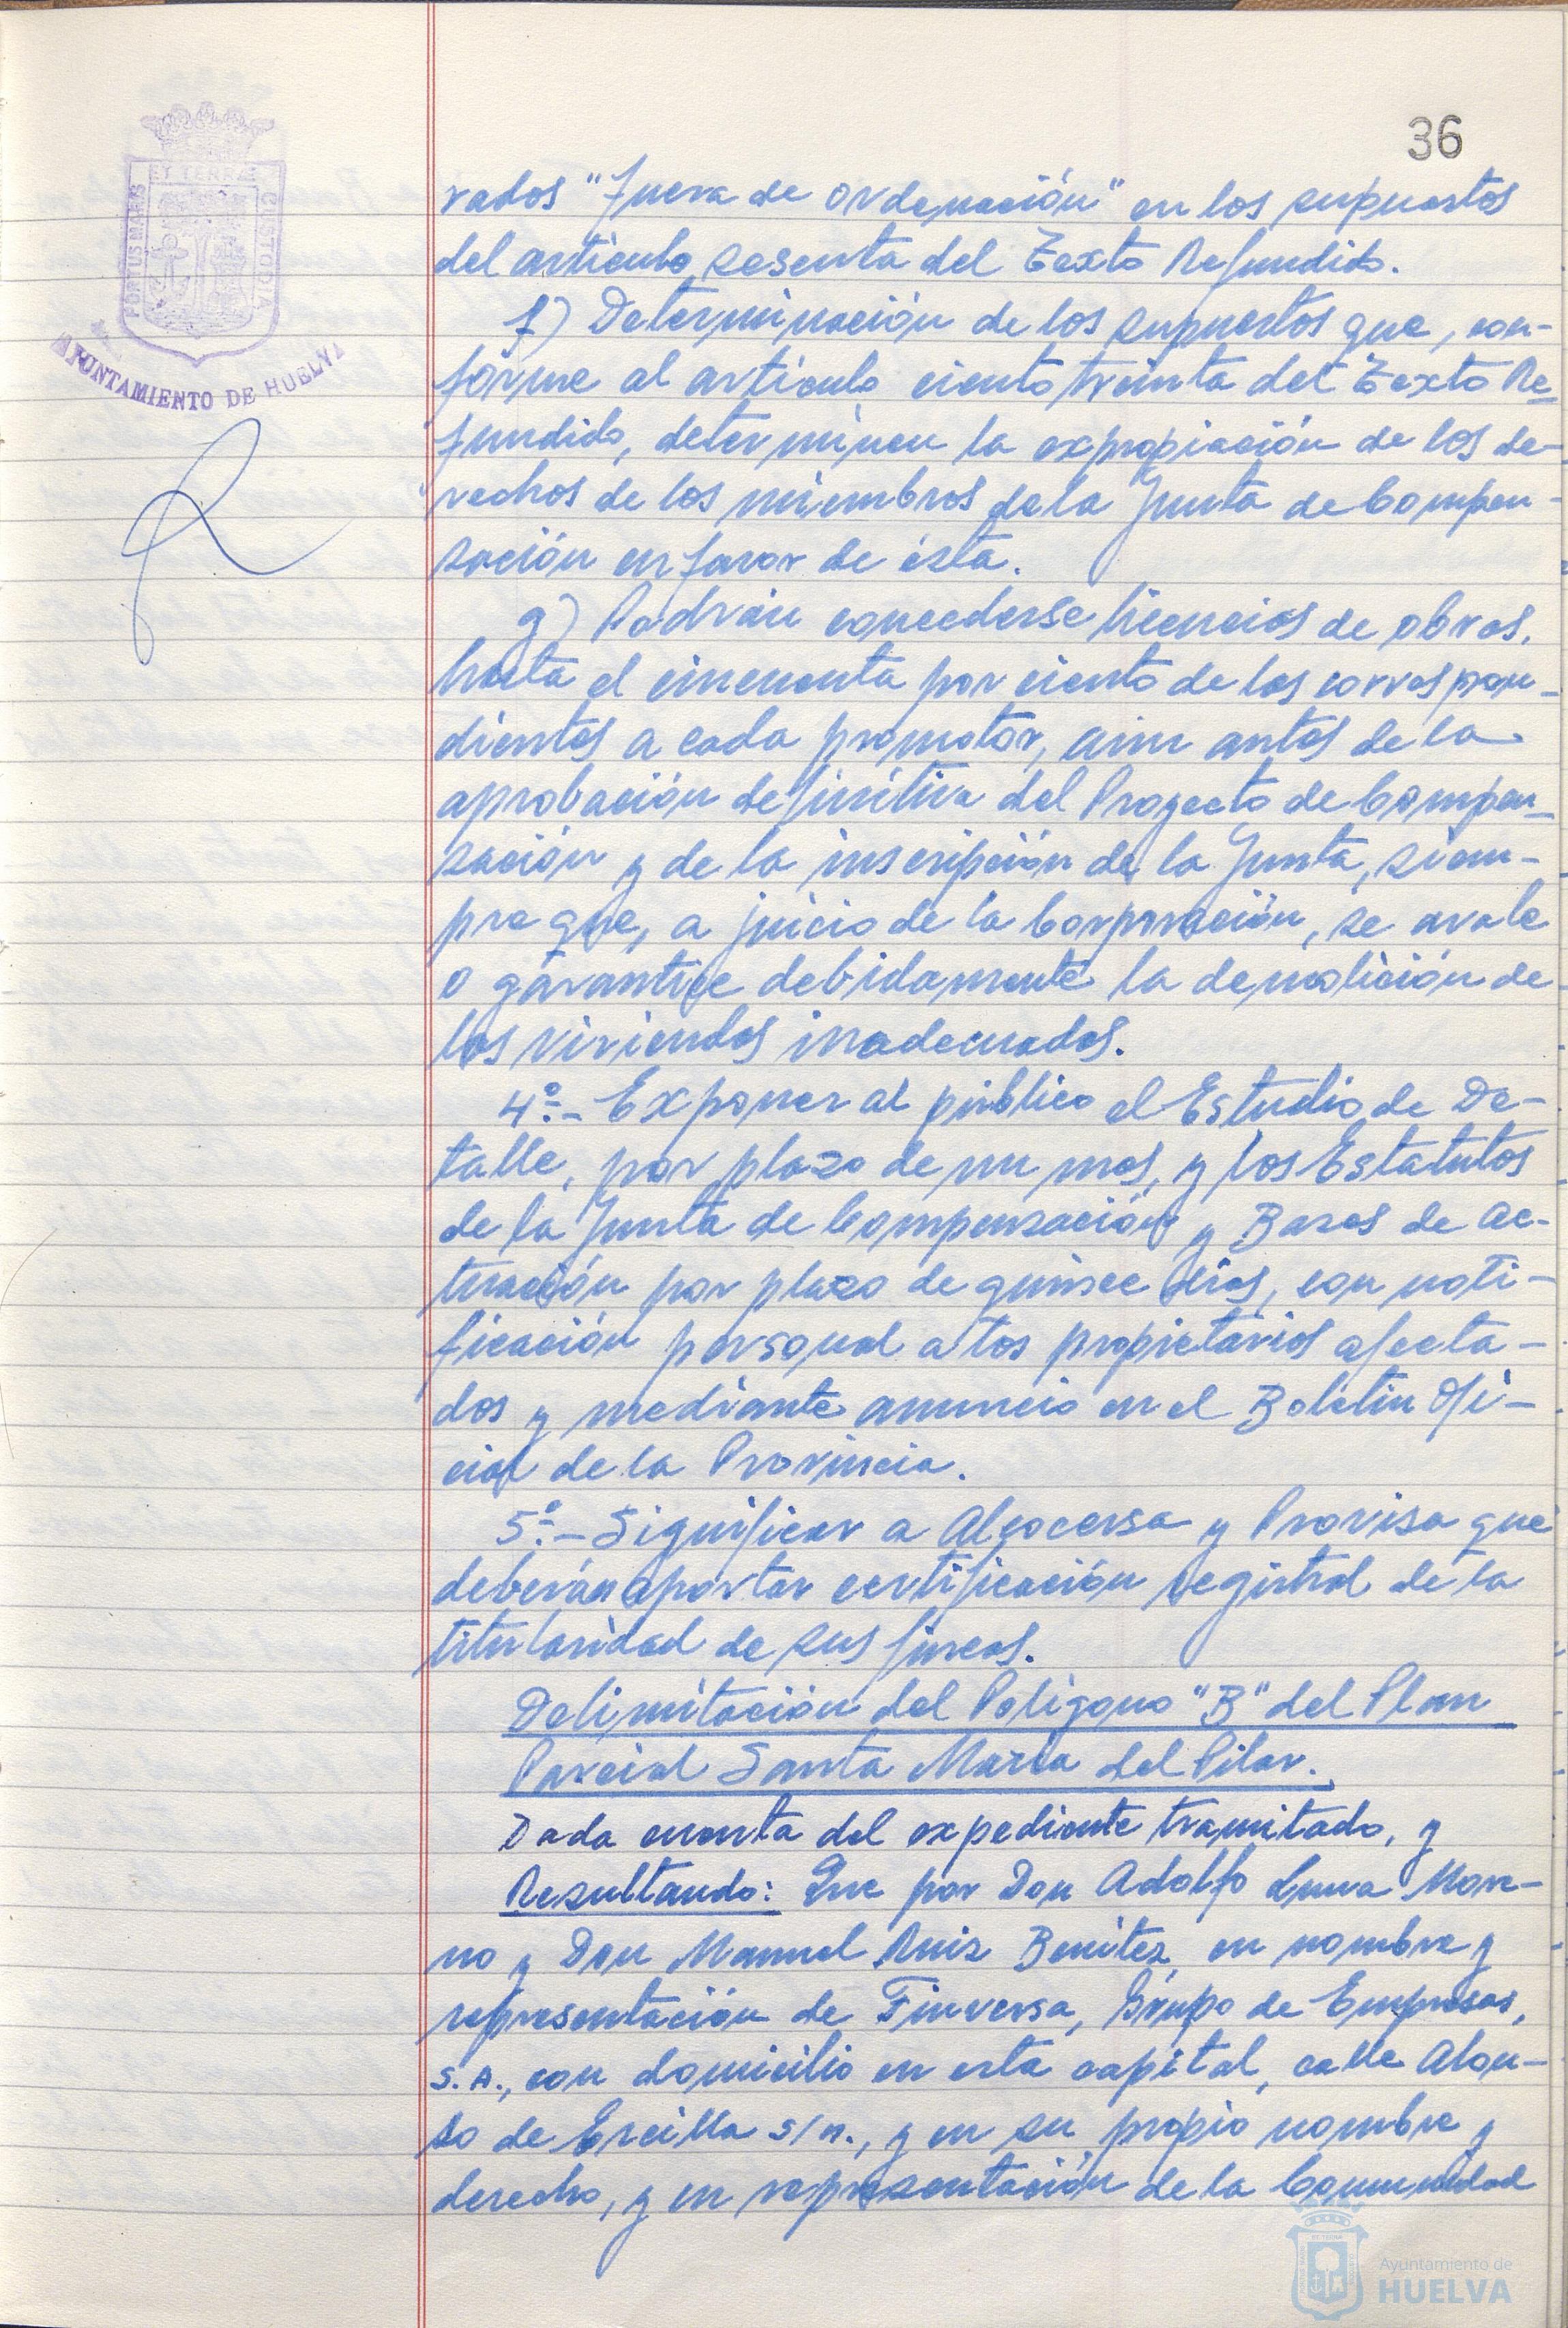 36
PORTUS MARIS
ET TERRAE
CUSTODIA
AYUNTAMIENTO DE HUELVA
rados "fuera de ordenación" en los supuestos
del artículo sesenta del Texto Refundido.
f) Determinación de los supuestos que, con-
forme al artículo ciento treinta del Texto Re-
fundido, determinen la expropiación de los de-
rechos de los miembros de la Junta de Compen-
sación en favor de ésta.
g) Podrán concederse licencias de obras,
hasta el cincuenta por ciento de las correspon-
dientes a cada promotor, aún antes de la
aprobación definitiva del Proyecto de Compen-
sación y de la inscripción de la Junta, siem-
pre que, a juicio de la Corporación, se avale
o garantice debidamente la demolición de
las viviendas inadecuadas.
4º.- Exponer al público el Estudio de De-
talle, por plazo de un mes, y los Estatutos
de la Junta de Compensación y Bases de Ac-
tuación por plazo de quince días, con noti-
ficación personal a los propietarios afecta-
dos y mediante anuncio en el Boletín Ofi-
cial de la Provincia.
5º.- Significar a Algocersa y Provisa que
deberán aportar certificación registral de la
titularidad de sus fincas.
Delimitación del Polígono "B" del Plan
Parcial Santa María del Pilar.
Dada cuenta del expediente tramitado, y
Resultando: Que por Don Adolfo Luna More-
no y Don Manuel Ruiz Benítez, en nombre y
representación de Finversa, Grupo de Empresas,
S.A., con domicilio en esta capital, calle Alon-
so de Ercilla s/n., y en su propio nombre y
derecho, y en representación de la Comunidad
Ayuntamiento de
HUELVA